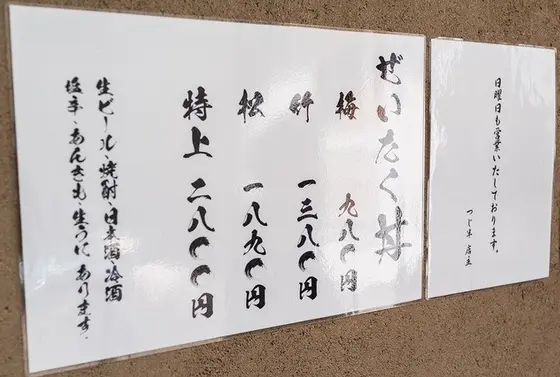 日曜日も営業いたしております。
つじ半 店主
ぜいたく丼
梅 九八〇円
竹 一三八〇円
松 一八九〇円
特上 二八〇〇円
生ビール、焼酎、日本酒、冷酒
塩辛、あんきも、生うに、あります。